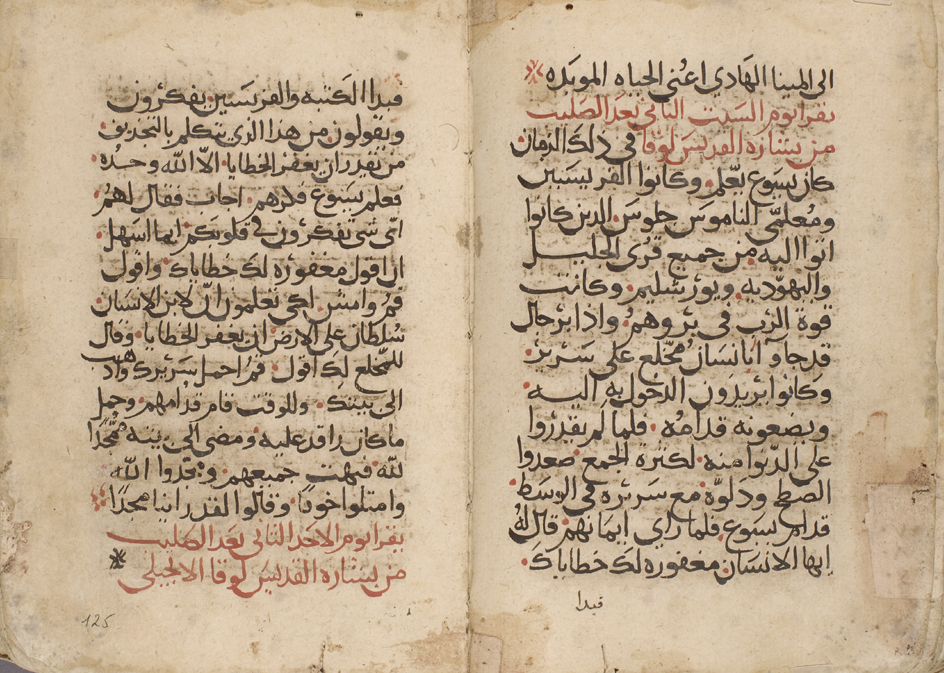 الى المينا الهادى اعنى الحياه الموبده
يقرا يوم السبت الثانى بعد الصليب
من بشارة القديس لوقا فى ذلك الزمان
كان يسوع يعلم وكانوا الفريسيين
ومعلمى الناموس جلوس الذين كانوا
اتوا اليه من جميع قرى الجليل
واليهوديه ويورشليم وكانت
قوة الرب فى بروهم واذا برجال
قد جاوا بانسان مخلع على سرير
وكانوا يريدون الدخول به اليه
ويضعونه قدامه فلما لم يقدروا
على الدنوا منه لكثرة الجمع صعدوا
السطح ودلوه مع سريره فى الوسط
قدام يسوع فلما راى ايمانهم قال له
ايها الانسان مغفوره لك خطاياك
فبدا
فبدا الكتبه والفريسيين يفكرون
ويقولون من هذا الذى يتكلم بالتجديف
من يقدر ان يغفر الخطايا الا الله وحده
فعلم يسوع فكرهم اجاب فقال لهم
اى شى تفكرون فى قلوبكم ايما اسهل
ان اقول مغفوره لك خطاياك واقول
قم وامش لكى تعلمون ان لابن الانسان
سلطان على الارض ان يغفر الخطايا وقال
للمخلع لك اقول قم احمل سريرك واذهب
الى بيتك وللوقت قام قدامهم وحمل
ما كان راقد عليه ومضى الى بيته ممجدا
لله فبهت جميعهم ومجدوا الله
وامتلوا خوفا وقالوا لقد راينا مجدا
يقرا يوم الاحد الثانى بعد الصليب
من بشارة القديس لوقا الانجيلى
125